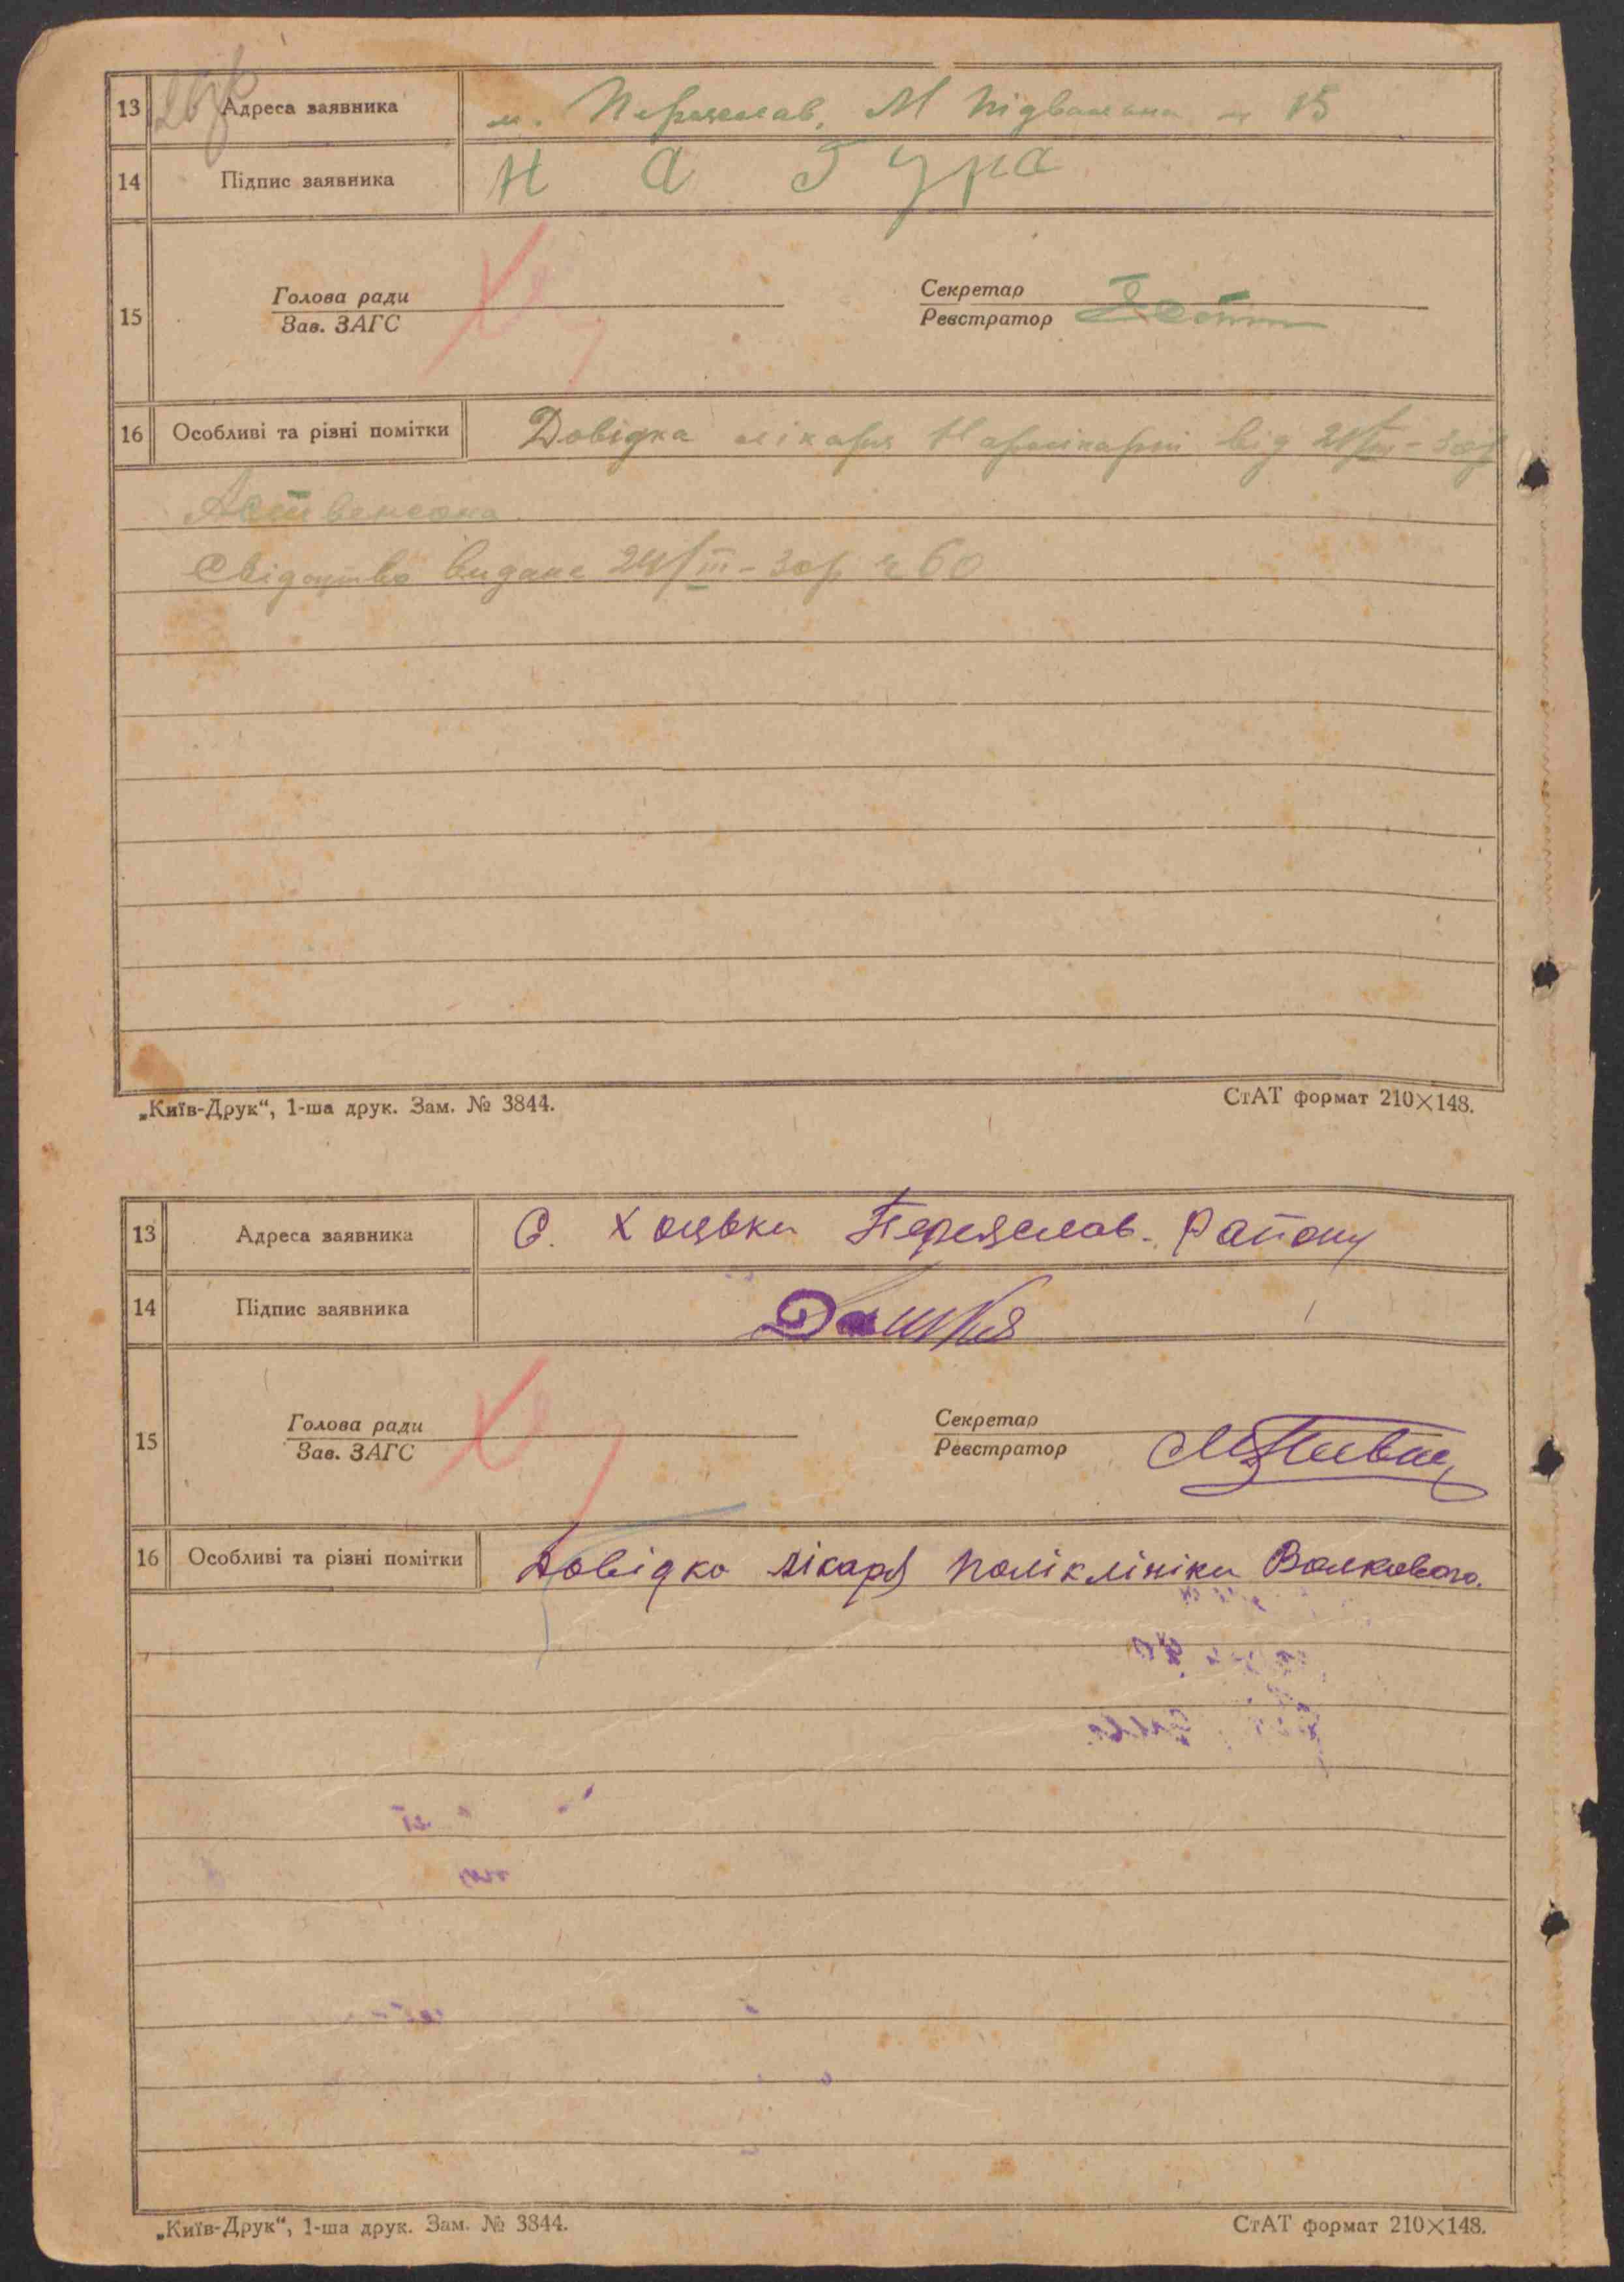 13 Адреса заявника м. Переяслав, М Підвальна 15
14 Підпис заявника На Гура
Голова ради Секретар
15 Зав. ЗАГС Реєстратор
16 Особливі та різні помітки Довідка лікаря від 24/III-30р
Свідоцтво видане 24/III-30р № 60
„Київ-Друк“, 1-ша друк. Зам. № 3844. СтАТ формат 210×148.
13 Адреса заявника С. Хоцьки Переяслав. Району
14 Підпис заявника
Голова ради Секретар
15 Зав. ЗАГС Реєстратор
16 Особливі та різні помітки Довідка лікаря поліклініки Волкового.
„Київ-Друк“, 1-ша друк. Зам. № 3844. СтАТ формат 210×148.